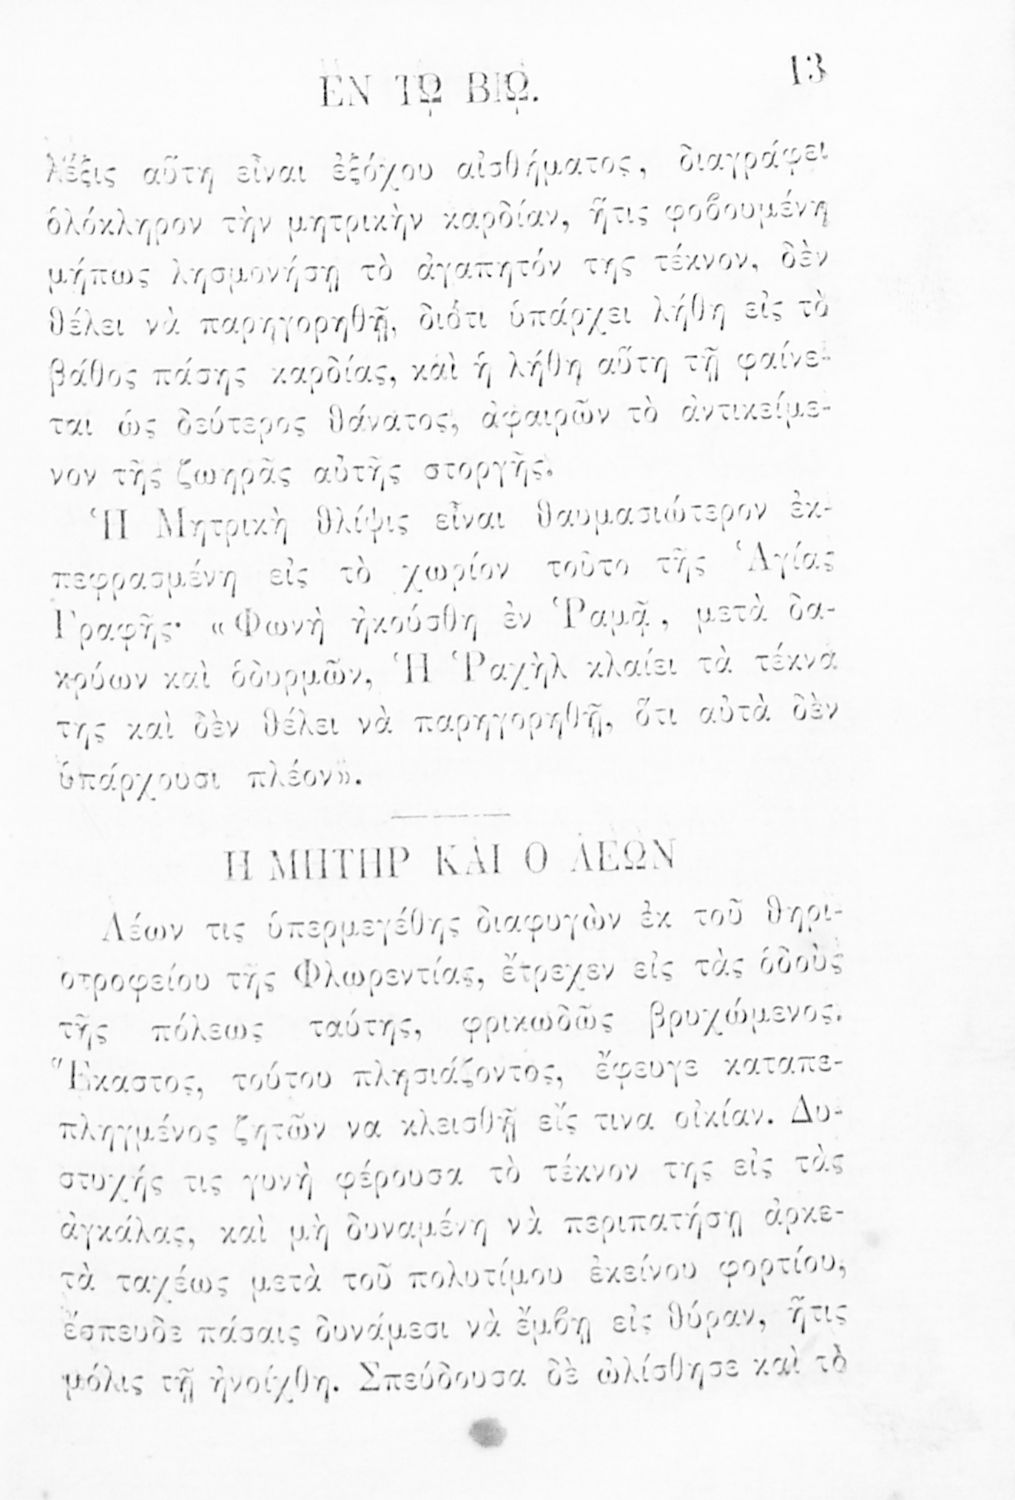 ΕΝ Τῼ ΒΙῼ.
13
λέξις αὕτη εἶναι ἐξόχου αἰσθήματος, διαγράφει
ὁλόκληρον τὴν μητρικὴν καρδίαν, ἥτις φοβουμένη
μήπως λησμονήσῃ τὸ ἀγαπητόν της τέκνον, δὲν
θέλει νὰ παρηγορηθῇ, διότι ὑπάρχει λήθη εἰς τὸ
βάθος πάσης καρδίας, καὶ ἡ λήθη αὕτη τῇ φαίνε-
ται ὡς δεύτερος θάνατος, ἀφαιρῶν τὸ ἀντικείμε-
νον τῆς ζωηρᾶς αὐτῆς στοργῆς.
Ἡ Μητρικὴ θλίψις εἶναι θαυμασιώτερον ἐκ-
πεφρασμένη εἰς τὸ χωρίον τοῦτο τῆς Ἁγίας
Γραφῆς· «Φωνὴ ἠκούσθη ἐν Ῥαμᾷ, μετὰ δα-
κρύων καὶ ὁδυρμῶν, Ἡ Ῥαχὴλ κλαίει τὰ τέκνα
της καὶ δὲν θέλει νὰ παρηγορηθῇ, ὅτι αὐτὰ δὲν
ὑπάρχουσι πλέον».
Η ΜΗΤΗΡ ΚΑΙ Ο ΛΕΩΝ
Λέων τις ὑπερμεγέθης διαφυγὼν ἐκ τοῦ θηρι-
οτροφείου τῆς Φλωρεντίας, ἔτρεχεν εἰς τὰς ὁδοὺς
τῆς πόλεως ταύτης, φρικωδῶς βρυχώμενος.
Ἕκαστος, τούτου πλησιάζοντος, ἔφευγε καταπε-
πληγμένος ζητῶν να κλεισθῇ εἴς τινα οἰκίαν. Δυ-
στυχής τις γυνὴ φέρουσα τὸ τέκνον της εἰς τὰς
ἀγκάλας, καὶ μὴ δυναμένη νὰ περιπατήσῃ ἀρκε-
τὰ ταχέως μετὰ τοῦ πολυτίμου ἐκείνου φορτίου,
ἔσπευδε πάσαις δυνάμεσι νὰ ἔμβῃ εἰς θύραν, ἥτις
μόλις τῇ ἠνοίχθη. Σπεύδουσα δὲ ὠλίσθησε καὶ τὸ